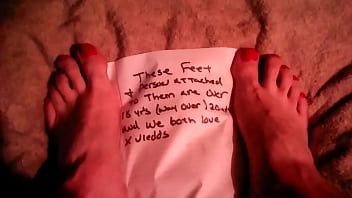 These Feet
+ person attached
to Them are over
18 yrs (way over)
and we both love
xviedds